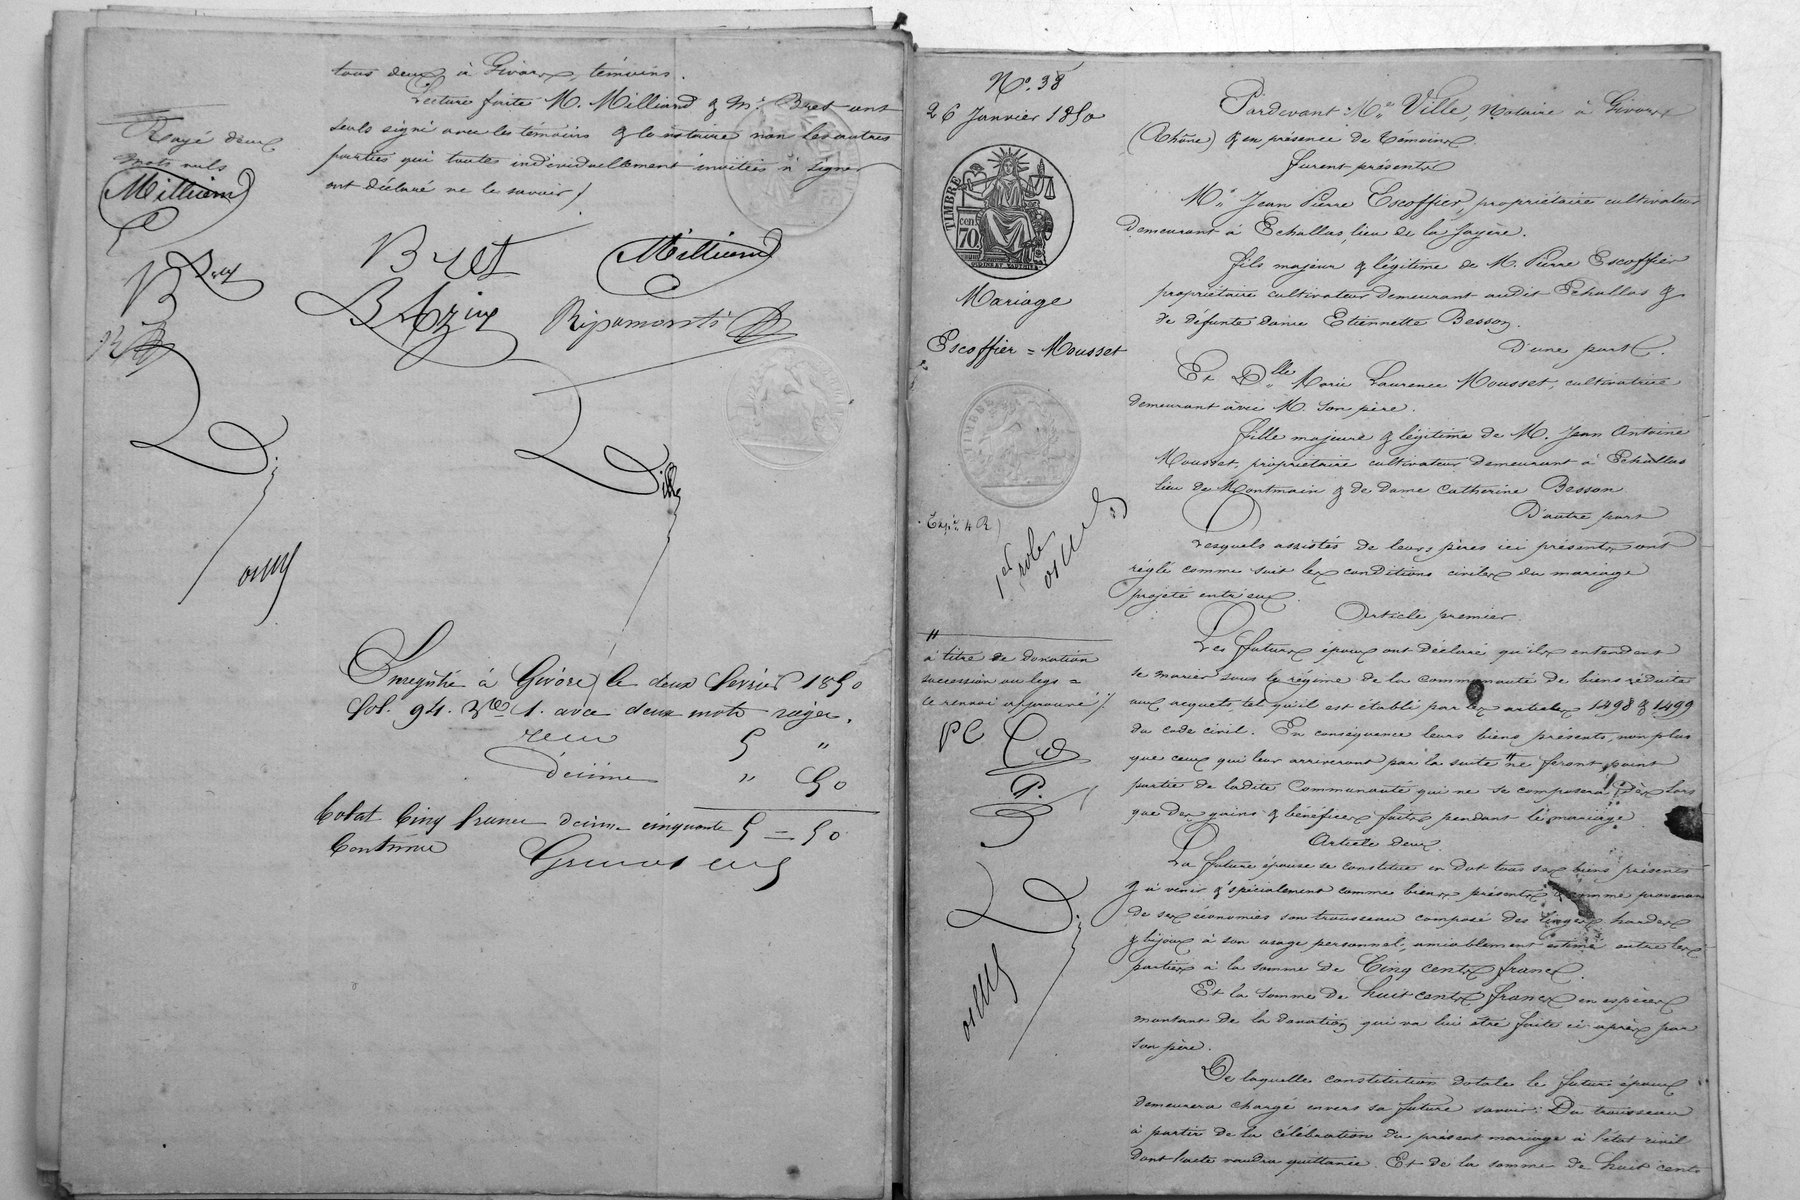 tous deux à Givors, témoins.
Lecture faite M. Milliand & Mr. Bret ont
seuls signé avec les témoins & le notaire non les autres
parties qui toutes individuellement invitées à signer
ont déclaré ne le savoir /
Rayé deux
mots nuls
Milliand
Bret
Milliand
B Azin
Ripamonti
Ville
Enregistré à Givors, le deux février 1850
fol. 94. Vo Ce 1. avec deux mots rayés.
reçu 5 "
Décime " 50
Total Cinq francs décime cinquante 5 = 50
Centime
No. 38
26 Janvier 1850
TIMBRE
cent
70
Mariage
Escoffier = Mousset
TIMBRE
1er role
"
à titre de donation
succession ou legs =
le renvoi approuvé ./.
PE
P.
Pardevant Me Ville, Notaire à Givors
(Rhône) & en présence de témoins.
furent présents
Mr Jean Pierre Escoffier, propriétaire cultivateur
demeurant à Echallas, lieu de la Jayère.
fils majeur & légitime de M. Pierre Escoffier
propriétaire cultivateur demeurant audit Echallas &
de défunte dame Etiennette Besson.
D'une part.
Et Dlle Marie Laurence Mousset, cultivatrice
demeurant avec M. son père.
fille majeure & légitime de M. Jean Antoine
Mousset, propriétaire cultivateur demeurant à Echallas
lieu de Montmain & de Dame Catherine Besson
D'autre part
Lesquels assistés de leurs pères ici présents ont
réglé comme suit les conditions civiles du mariage
projeté entr'eux.
Article premier
Les futurs époux ont déclaré qu'ils entendent
se marier sous le régime de la communauté de biens réduite
aux acquets tel qu'il est établi par les articles 1498 & 1499
du code civil. En conséquence leurs biens présents, non plus
que ceux qui leur arriveront par la suite " ne feront point
partie de ladite Communauté qui ne se composera dès lors
que des gains & bénéfices faits pendant le mariage
Article deux.
La future épouse se constitue en Dot tous ses biens présents
& à venir & spécialement comme biens présents & comme provenant
de ses économies son trousseau composé des linges, hardes
& bijoux à son usage personnel, amiablement estimé entre les
parties à la somme de Cinq cents francs.
Et la somme de huit cents francs en espèces
montant de la donation qui va lui être faite ci après par
son père.
De laquelle constitution dotale le futur époux
demeurera chargé envers sa future savoir: Du trousseau
à partir de la célébration du présent mariage à l'état civil
dont l'acte vaudra quittance. Et de la somme de huit cents